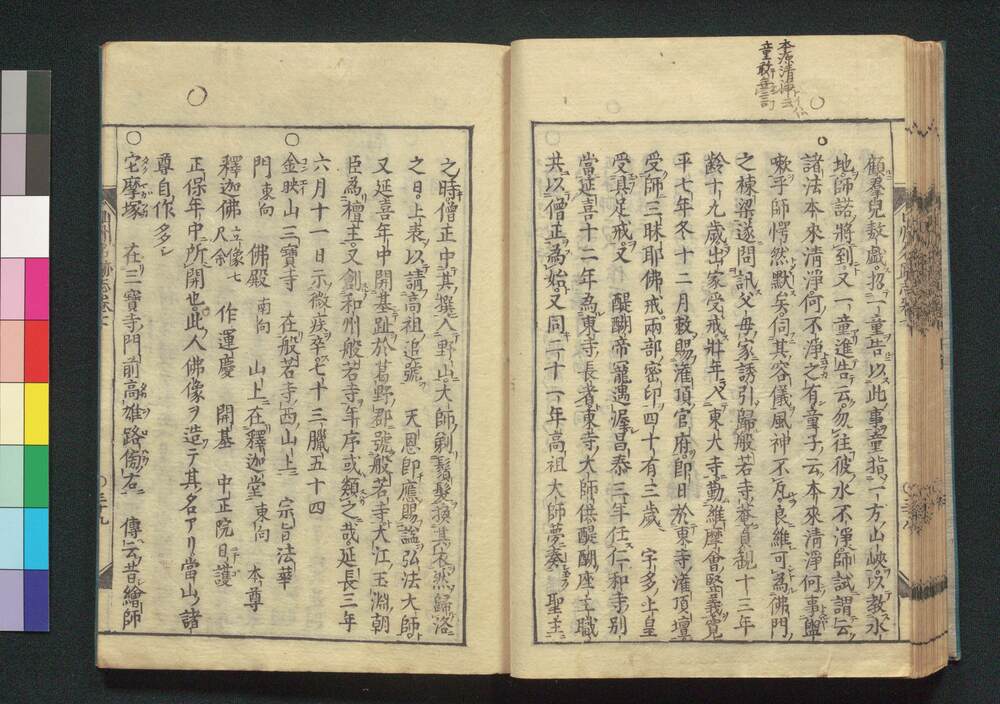 本源清浄云
童敢無言
顧羣兒敷戯招一童告以此事童指一方山峽以教水
地師諾將到又一童進告云勿往彼水不淨師試謂云
諸法本來清淨何不淨之有童子云本來清淨何事盥
嗽乎師愕然默矣伺其容儀風神不凡良維可為佛門
之棟梁遂問訊父母家誘引歸般若寺養貞観十三年
齡十九歳出家受戒壯年入東大寺勤維摩會竪義寛
平七年冬十二月敕賜潅頂官府即日於東寺潅頂壇
受師三昧耶佛戒兩部密印四十有三歳 宇多上皇
受具足戒又 醍醐帝寵遇渥昌泰三年任仁和寺別
當延喜十二年為東寺長者東寺大師供醍醐座主職
共以僧正為始又同二十一年高祖大師夢奏 聖主
之時僧正中其撰入野山大師剃鬚髮換其衣然歸洛
之日上表以請高祖追號 天恩即應賜謚弘法大師
又延喜年中開基趾於葛野郡號般若寺大江玉淵朝
臣為檀主又創和州般若寺年序或類之哉延長三年
六月十一日示微疾卒七十三臘五十四
金映山三寶寺 在般若寺西山上 宗旨法華
門東向 佛殿南向 山上在釋迦堂東向 本尊
釋迦佛立像七尺余 作運慶 開基 中正院日護
正保年中所開也此人佛像ヲ造テ其名アリ當山諸
尊自作多シ
宅摩塚 在三寶寺門前高雄路傍右 傳云昔繪師